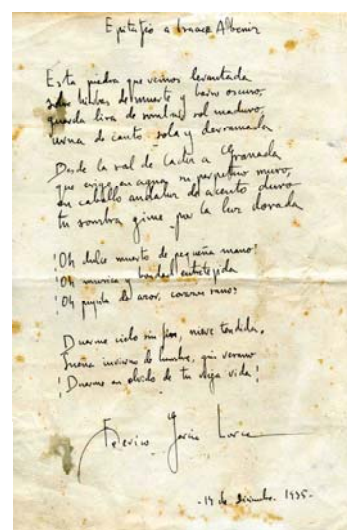 Epitafio a Isaac Albéniz
Esta piedra que vemos levantada
sobre hierbas de muerte y barro oscuro,
guarda lira de sombra, sol maduro,
urna de canto sola y derramada
Desde la sal de Cádiz a Granada
que erige en agua su perpetuo muro,
en caballo andaluz de acento duro
tu sombra gime por la luz dorada
¡Oh dulce muerto de pequeña mano!
¡Oh música y bondad entretejida
¡Oh pupila de azor, corazón sano!
Duerme cielo sin fin, nieve tendida,
Sueña invierno de lumbre, gris verano
¡Duerme en olvido de tu vieja vida!
Federico García Lorca
-14 de Diciembre. 1935-